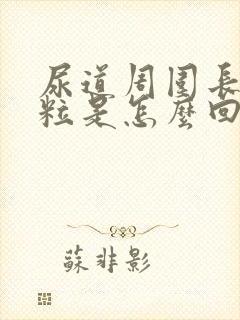 尿道周圍長
粒是怎麼回
蘇非影